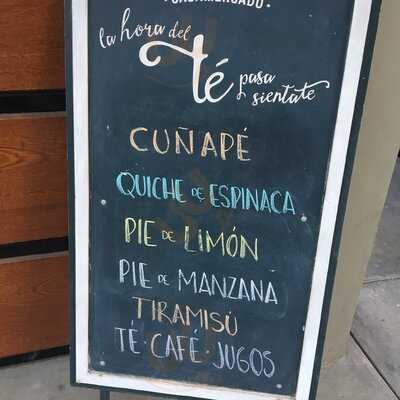 la hora del
té pasa
sientate
CUÑAPÉ
QUICHE DE ESPINACA
PIE DE LIMÓN
PIE DE MANZANA
TIRAMISÚ
TÉ · CAFÉ · JUGOS